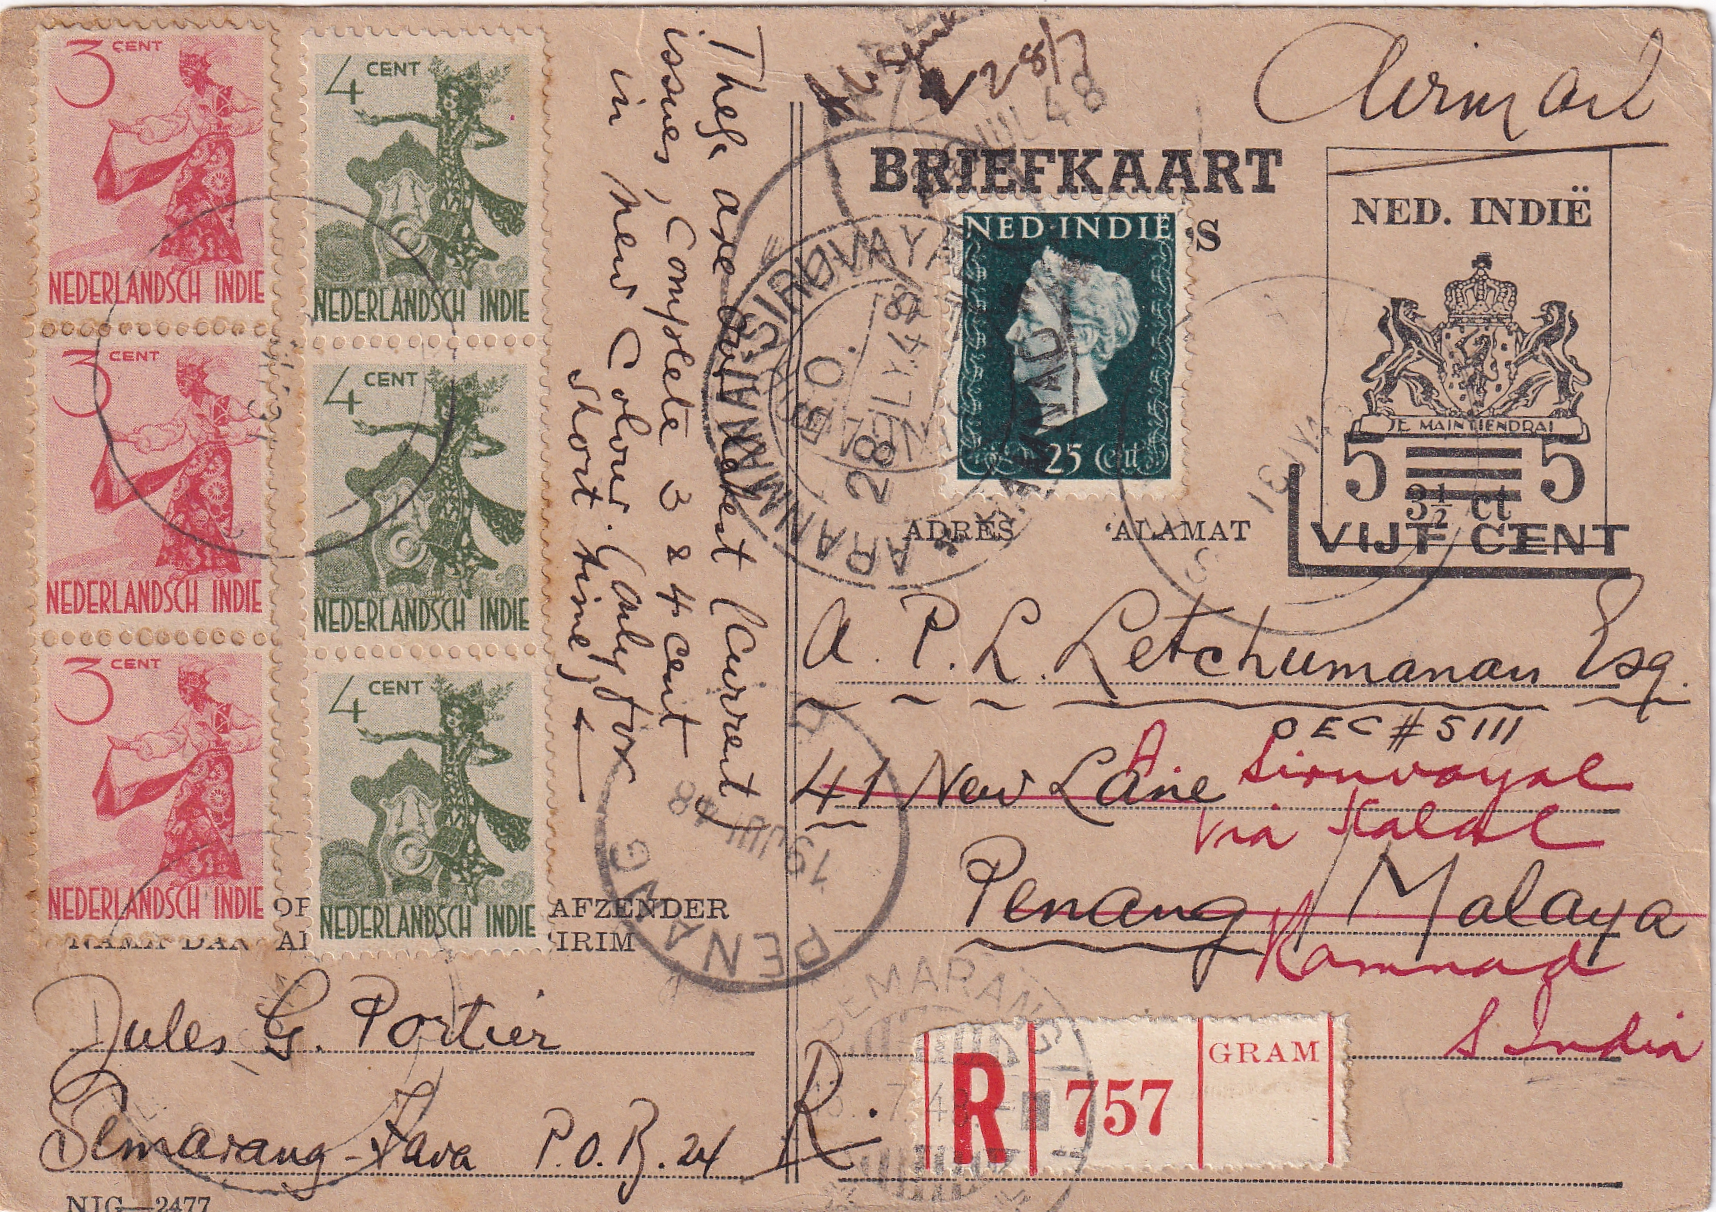 3 CENT
NEDERLANDSCH INDIE
3 CENT
NEDERLANDSCH INDIE
3 CENT
NEDERLANDSCH INDIE
4 CENT
NEDERLANDSCH INDIE
4 CENT
NEDERLANDSCH INDIE
4 CENT
NEDERLANDSCH INDIE
These are our latest (Current)
issues, Complete 3 & 4 cent
in new Colour. (only for
short time)
AFZENDER
NAMA DAN
IRIM
Jules G. Portier
Semarang-Java P.O.B. 24
NIG—2477
Airmail
228/7
JUL 48
BRIEFKAART
S
NED. INDIË
JE MAINTIENDRAI
5 5
3½ ct
VIJF CENT
NED·INDIË
25 Cent
ARANMANAISIRUVAYAL
B.O.
28 JLY.48
RAMNAD
ADRES ALAMAT
A. P. L. Letchumanan Esq.
DEC # 5111
41 New Lane
A. Siruvayal
via Kalal
Penang / Malaya
Ramnad
S India
PENANG
19 JUL 48
SEMARANG
7.48
R.
R 757 GRAM